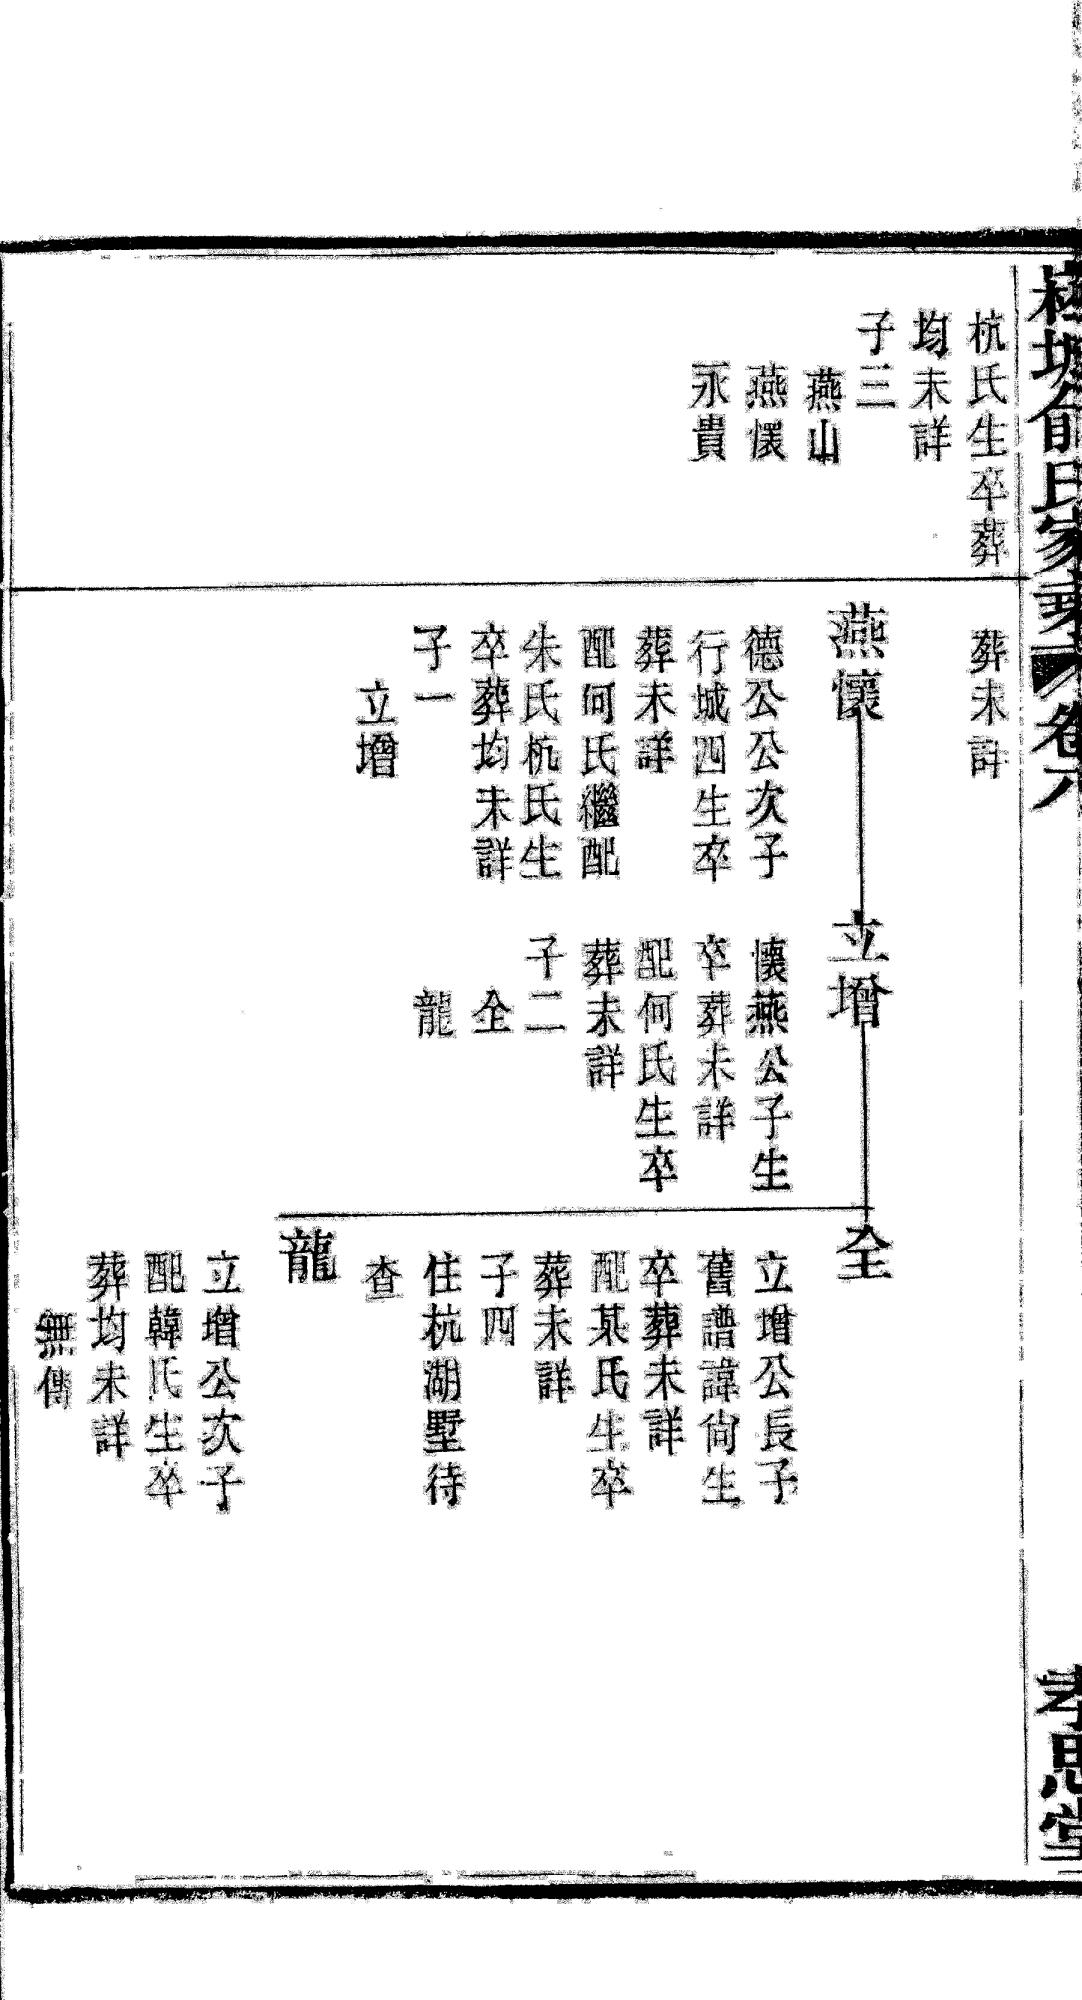 俞氏家乘 卷六
孝思堂
杭氏生卒葬
均未詳
子三
燕山
燕懷
永貴
葬未詳
燕懷
德公公次子
行城四生卒
葬未詳
配何氏繼配
朱氏杭氏生
卒葬均未詳
子一
立增
立增
懷燕公子生
卒葬未詳
配何氏生卒
葬未詳
子二
全
龍
全
立增公長子
舊譜諱尙生
卒葬未詳
配某氏生卒
葬未詳
子四
住杭湖墅待
查
龍
立增公次子
配韓氏生卒
葬均未詳
無傳